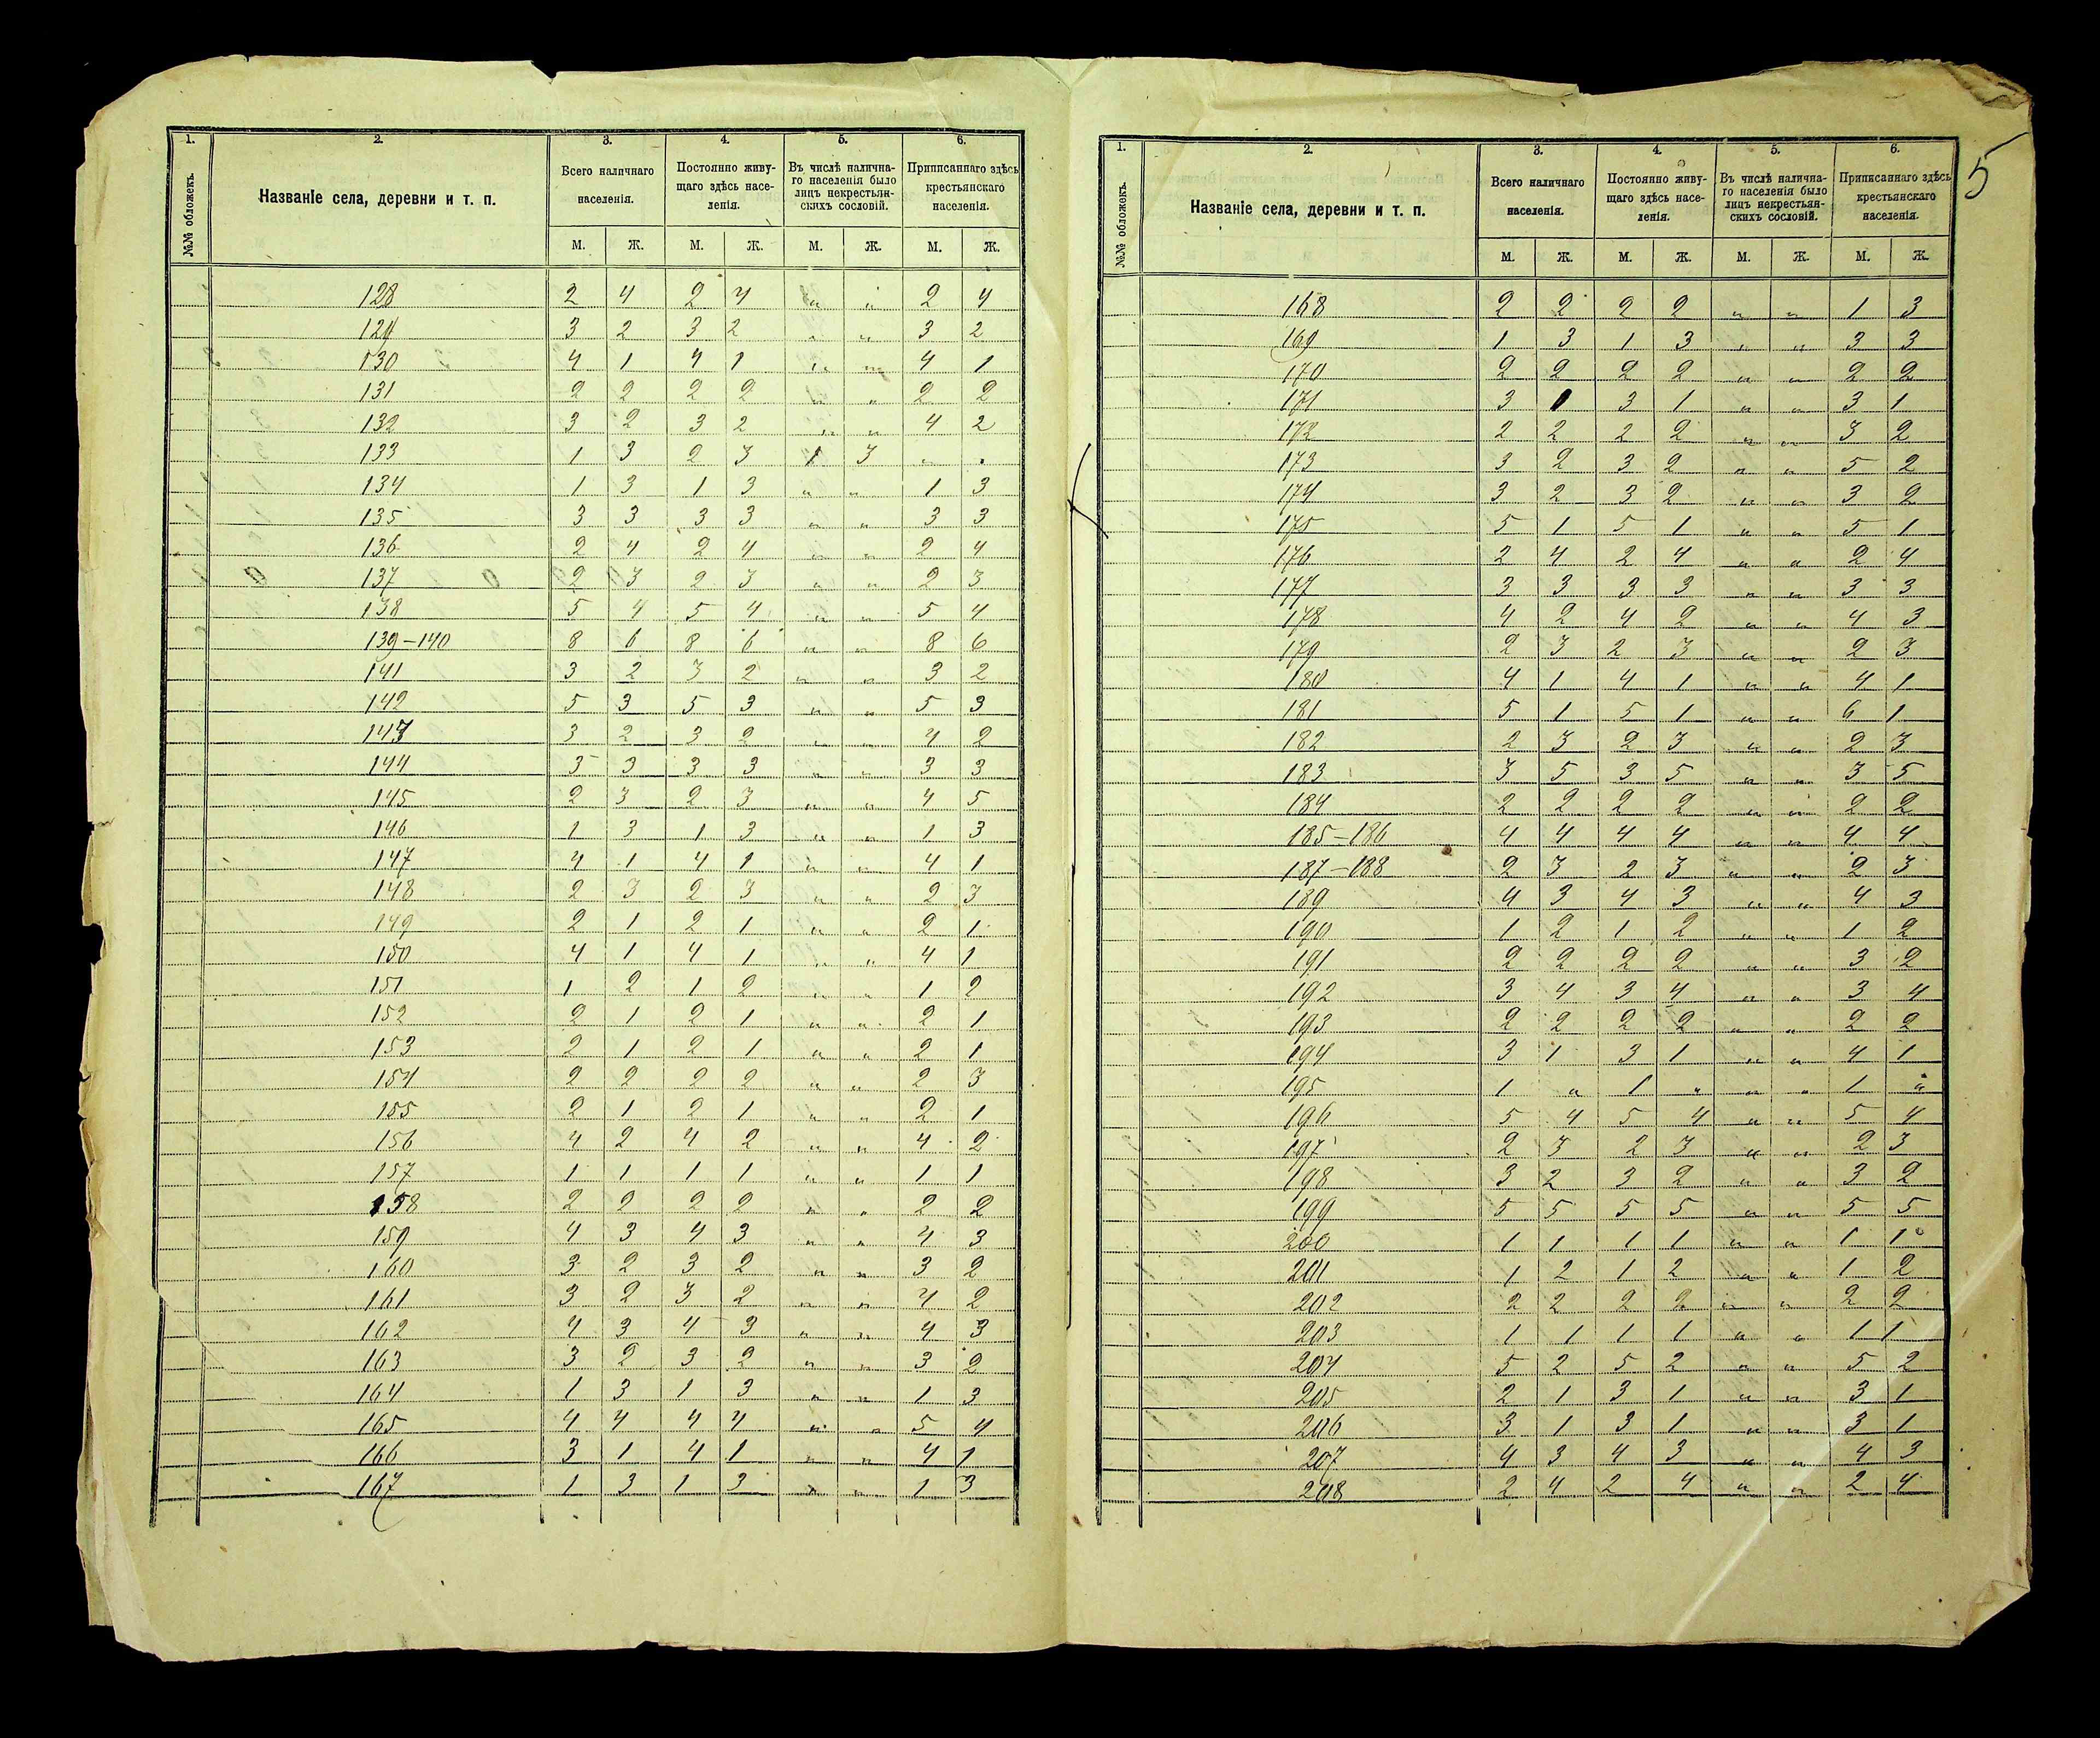 1. 2. 3. 4. 5. 6.
№№ обложекъ. Названіе села, деревни и т. п. Всего наличнаго населенія. Постоянно живущаго здѣсь населенія. Въ числѣ наличнаго населенія было лицъ некрестьянскихъ сословій. Приписаннаго здѣсь крестьянскаго населенія.
М. Ж. М. Ж. М. Ж. М. Ж.
128 2 4 2 4 " " 2 4
129 3 2 3 2 " " 3 2
130 4 1 4 1 " " 4 1
131 2 2 2 2 " " 2 2
132 3 2 3 2 " " 4 2
133 1 3 2 3 1 3 " "
134 1 3 1 3 " " 1 3
135 3 3 3 3 " " 3 3
136 2 4 2 4 " " 2 4
137 2 3 2 3 " " 2 3
138 5 4 5 4 " " 5 4
139-140 8 6 8 6 " " 8 6
141 3 2 3 2 " " 3 2
142 5 3 5 3 " " 5 3
143 3 2 3 2 " " 4 2
144 3 3 3 3 " " 3 3
145 2 3 2 3 " " 4 5
146 1 3 1 3 " " 1 3
147 4 1 4 1 " " 4 1
148 2 3 2 3 " " 2 3
149 2 1 2 1 " " 2 1
150 4 1 4 1 " " 4 1
151 1 2 1 2 " " 1 2
152 2 1 2 1 " " 2 1
153 2 1 2 1 " " 2 1
154 2 2 2 2 " " 2 3
155 2 1 2 1 " " 2 1
156 4 2 4 2 " " 4 2
157 1 1 1 1 " " 1 1
158 2 2 2 2 " " 2 2
159 4 3 4 3 " " 4 3
160 3 2 3 2 " " 3 2
161 3 2 3 2 " " 4 2
162 4 3 4 3 " " 4 3
163 3 2 3 2 " " 3 2
164 1 3 1 3 " " 1 3
165 4 4 4 4 " " 5 4
166 3 1 4 1 " " 4 1
167 1 3 1 3 " " 1 3
5
1. 2. 3. 4. 5. 6.
№№ обложекъ. Названіе села, деревни и т. п. Всего наличнаго населенія. Постоянно живущаго здѣсь населенія. Въ числѣ наличнаго населенія было лицъ некрестьянскихъ сословій. Приписаннаго здѣсь крестьянскаго населенія.
М. Ж. М. Ж. М. Ж. М. Ж.
168 2 2 2 2 " " 1 3
169 1 3 1 3 " " 3 3
170 2 2 2 2 " " 2 2
171 3 1 3 1 " " 3 1
172 2 2 2 2 " " 3 2
173 3 2 3 2 " " 5 2
174 3 2 3 2 " " 3 2
175 5 1 5 1 " " 5 1
176 2 4 2 4 " " 2 4
177 3 3 3 3 " " 3 3
178 4 2 4 2 " " 4 3
179 2 3 2 3 " " 2 3
180 4 1 4 1 " " 4 1
181 5 1 5 1 " " 6 1
182 2 3 2 3 " " 2 3
183 3 5 3 5 " " 3 5
184 2 2 2 2 " " 2 2
185-186 4 4 4 4 " " 4 4
187-188 2 3 2 3 " " 2 3
189 4 3 4 3 " " 4 3
190 1 2 1 2 " " 1 2
191 2 2 2 2 " " 3 2
192 3 4 3 4 " " 3 4
193 2 2 2 2 " " 2 2
194 3 1 3 1 " " 4 1
195 1 " 1 " " " 1 "
196 5 4 5 4 " " 5 4
197 2 3 2 3 " " 2 3
198 3 2 3 2 " " 3 2
199 5 5 5 5 " " 5 5
200 1 1 1 1 " " 1 1
201 1 2 1 2 " " 1 2
202 2 2 2 2 " " 2 2
203 1 1 1 1 " " 1 1
204 5 2 5 2 " " 5 2
205 2 1 3 1 " " 3 1
206 3 1 3 1 " " 3 1
207 4 3 4 3 " " 4 3
208 2 4 2 4 " " 2 4